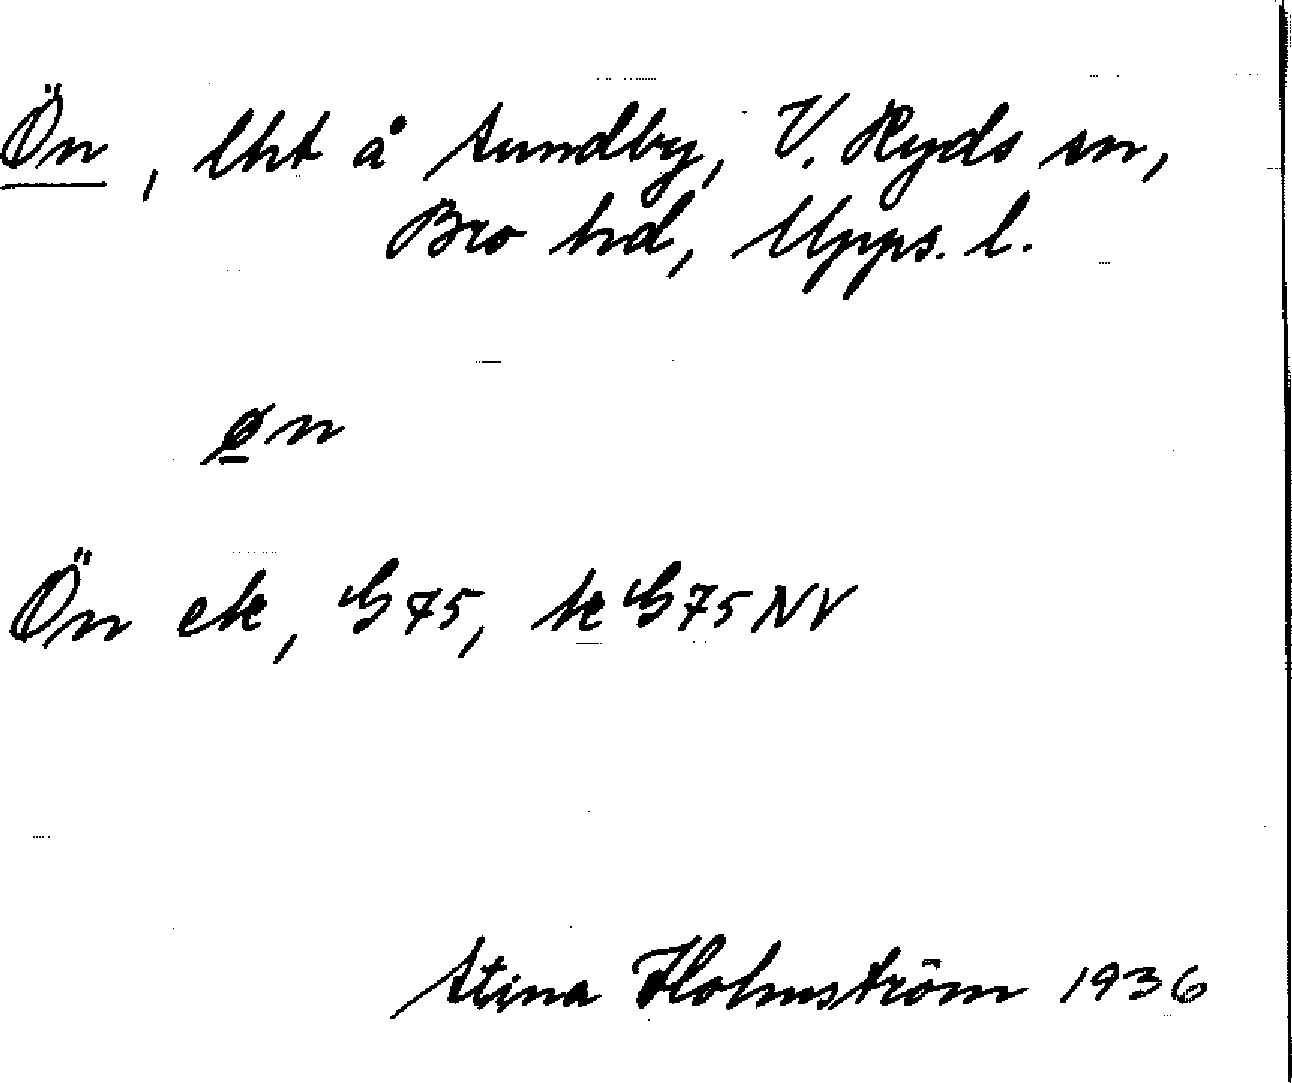 Ön, lht å Sundby, V. Ryds sn,
Bro hd, Upps. l.
øn
Ön ek, G 75, k G 75 NV
Stina Holmström 1936